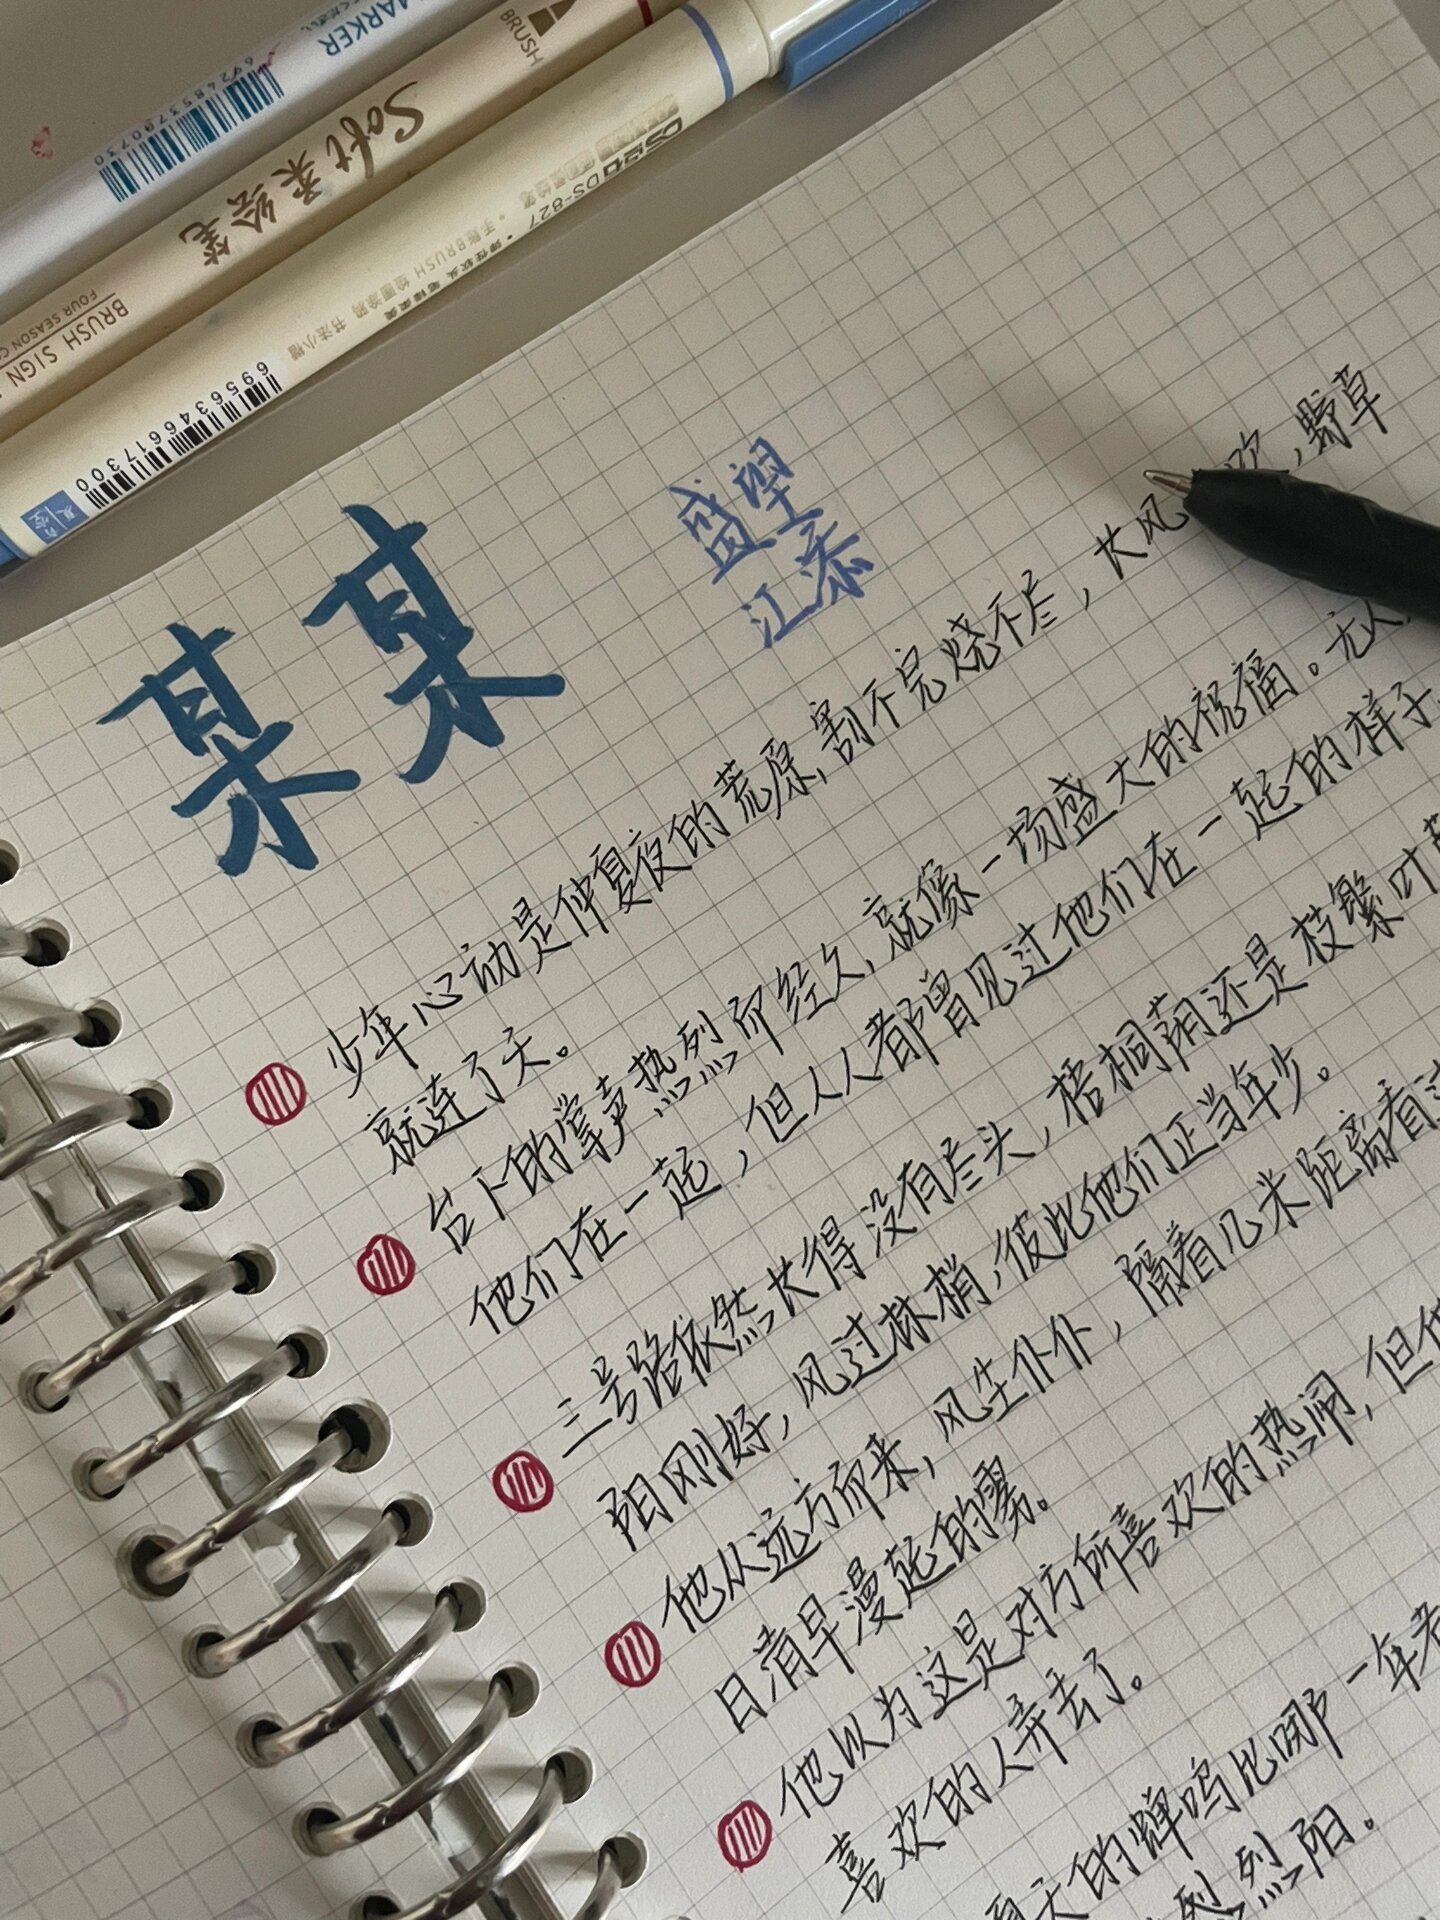 MARKER
6924853790730
BRUSH
Soft 柔绘笔
BRUSH SIGN
FOUR SEASON
DS-827
手账BRUSH 绘画涂鸦 书法小楷
6956346617300
某某
盛望
江添
少年心动是仲夏夜的荒原,割不完烧不尽,长风 吹,野草
就连了天。
台下的掌声热烈而经久,就像一场盛大的祝福。无人
他们在一起,但人人都曾见过他们在一起的样子
三号路依然长得没有尽头,梧桐荫还是枝繁叶
阳刚好,风过林梢,彼此他们正当年少。
他从远方而来,风尘仆仆,隔着几米距离看
日清早漫起的雾。
他以为这是对方所喜欢的热闹,但
喜欢的人弄丢了。
夏天的蝉鸣比哪一年
烈 烈阳。